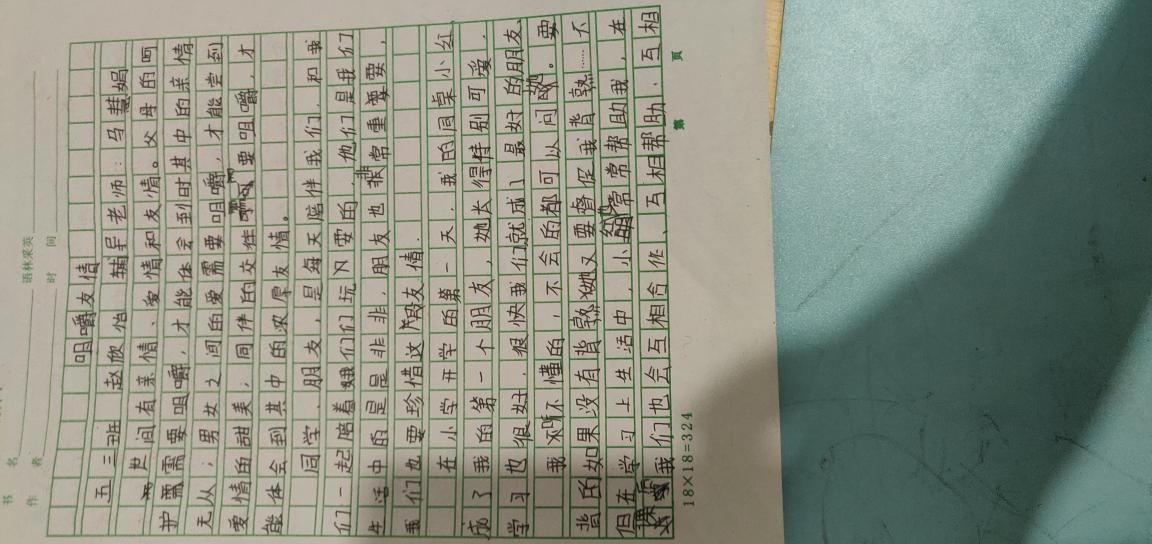 书 名
作 者
语林采英
时 间
咀嚼友情
五 三班 赵欣怡 辅导老师：马慧娟
世间有亲情、爱情和友情。父母的呵
护需要咀嚼，才能体会到时其中的亲情
无从；男女之间的爱需要咀嚼，才能尝到
爱情的甜美；同伴的交往需要咀嚼，才
能体会到其中的浓厚友情。
同学、朋友，是每天陪伴我们，和我
们一起陪着我们们玩又耍的，他们是我们
生活中的是是非非，朋友也非常重要要，
我们也要珍惜这友情．
在小学开学的第一天．我的同桌小红
成了我的第一个朋友，她长得特别可爱．
学习也很好．很快我们就成了最好的朋友
我不懂的，不会的都可以问她。要
背的如果没有背熟她又要督促我背熟……不
但在学习上生活中，小红常常帮助我，在
我们也会互相合作、互相帮助．互相
18×18=324
第 页